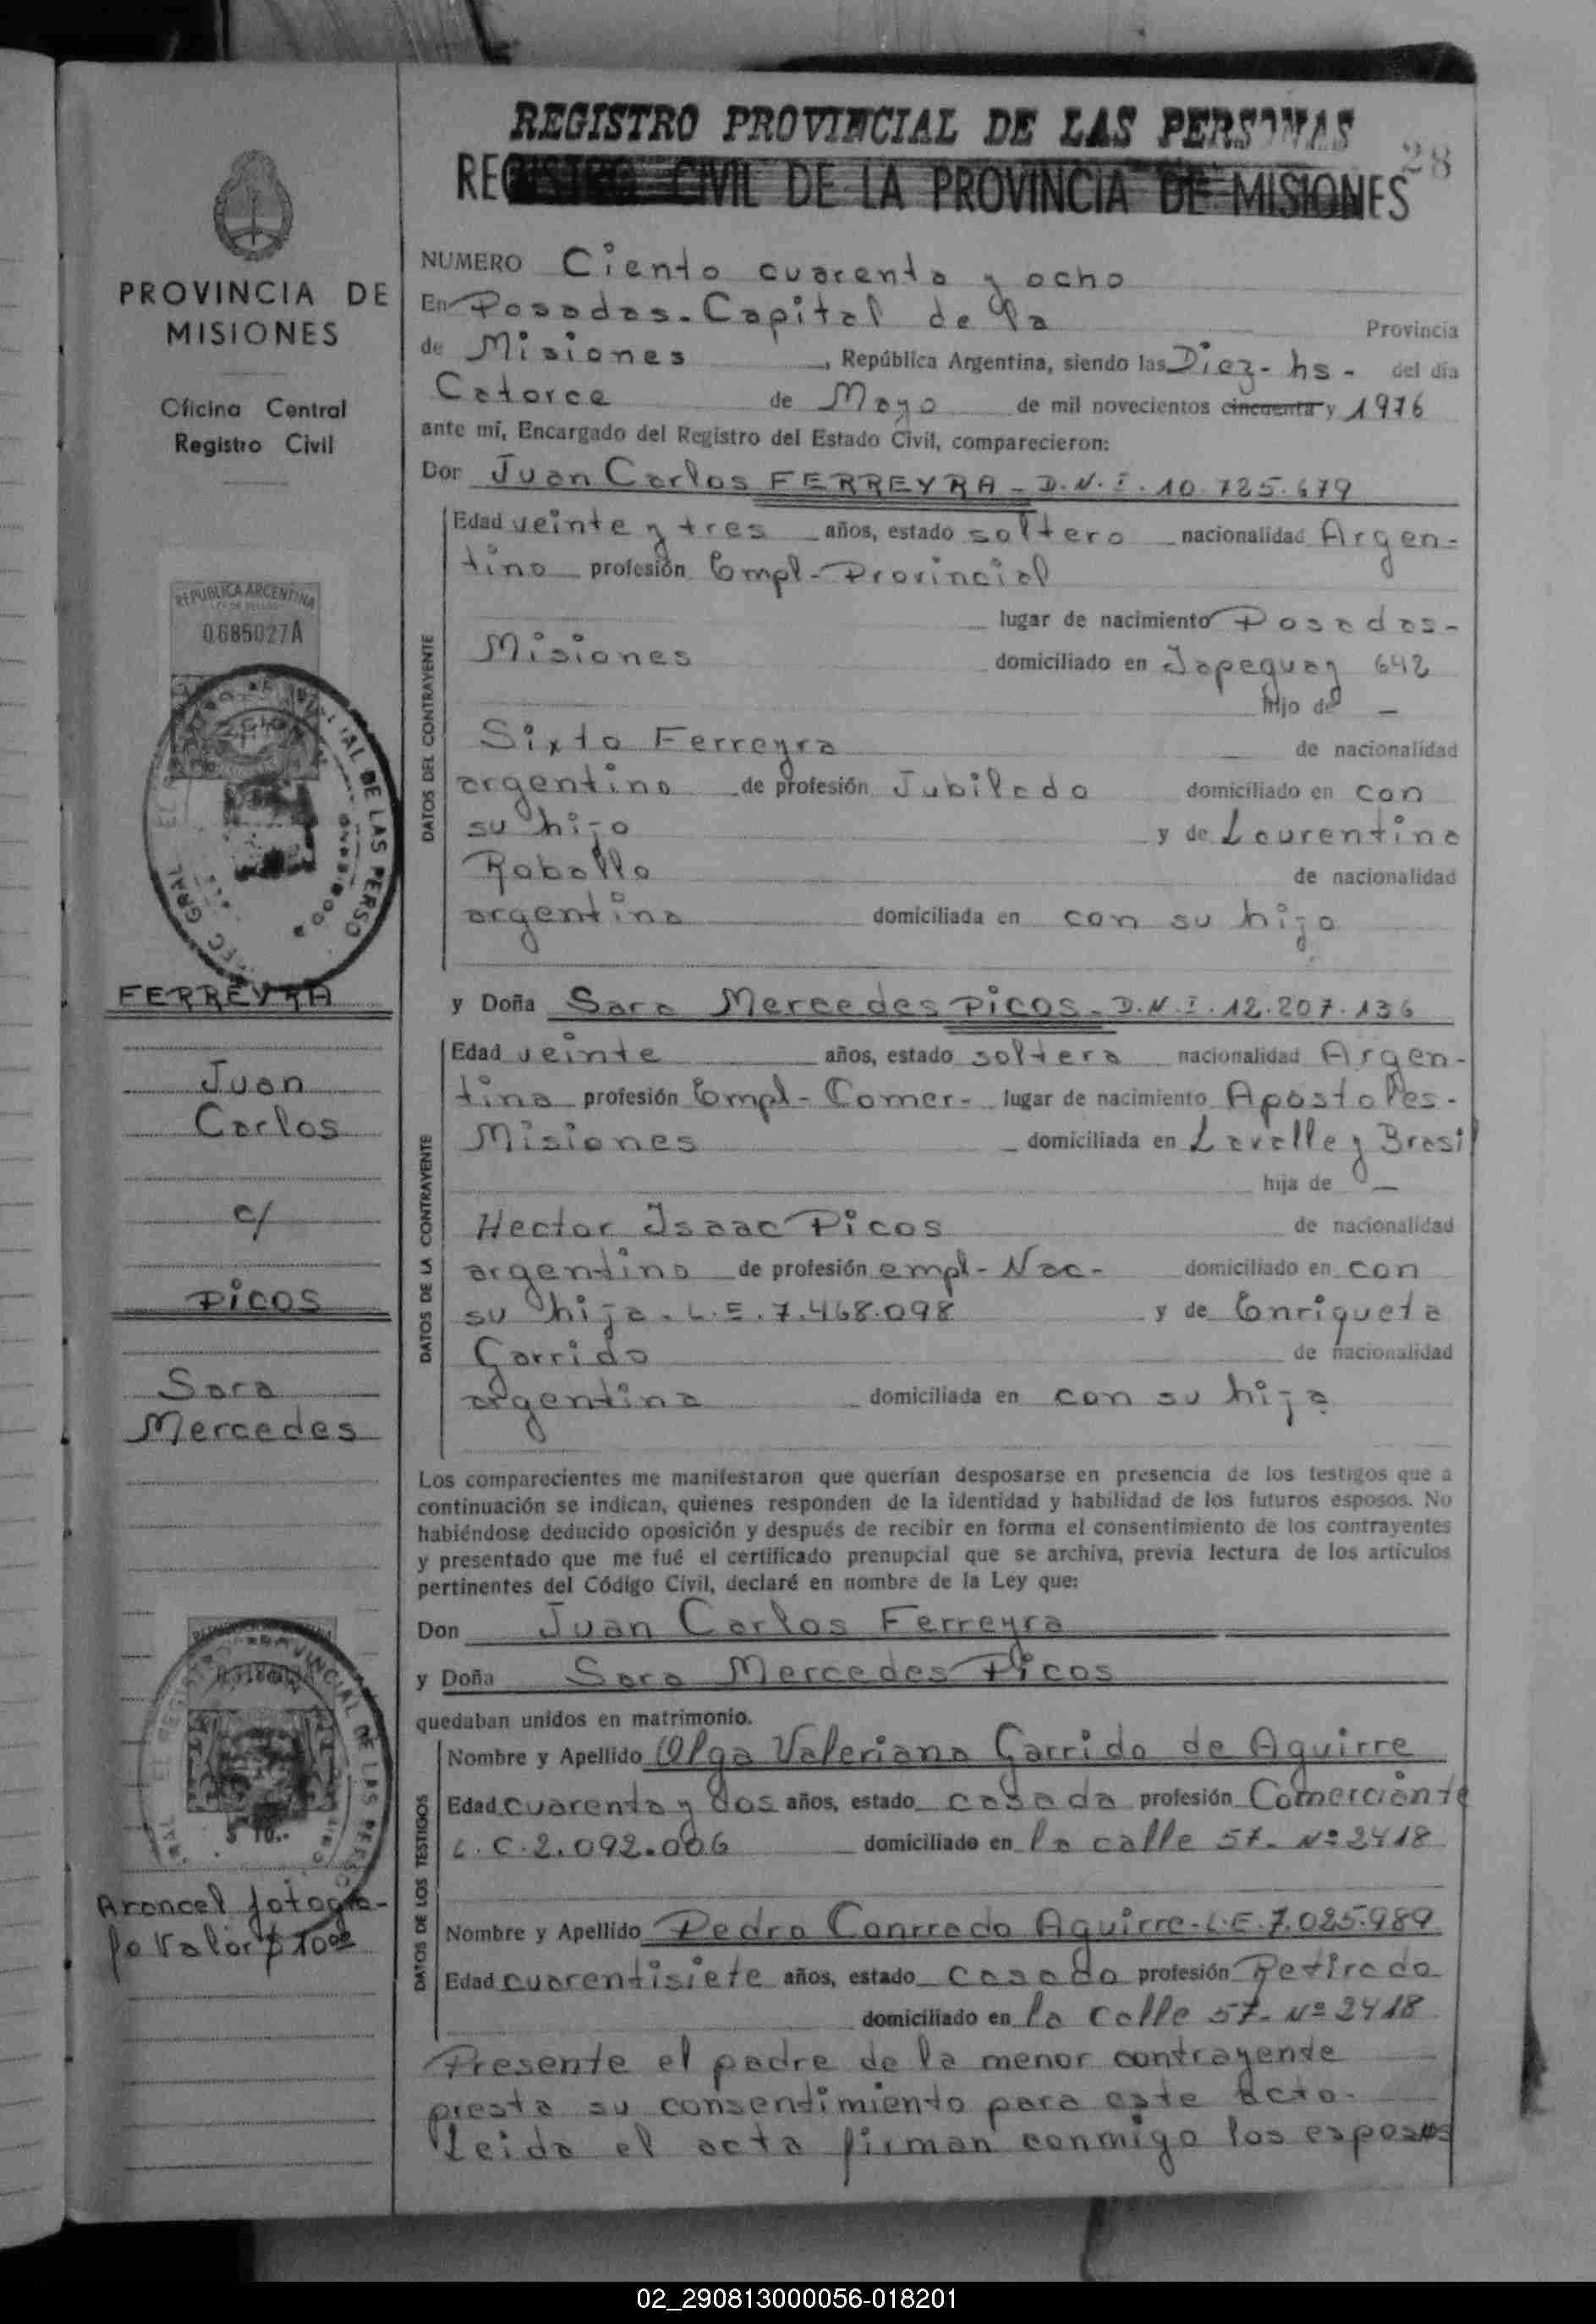 REGISTRO PROVINCIAL DE LAS PERSONAS
28
REGISTRO CIVIL DE LA PROVINCIA DE MISIONES
PROVINCIA DE
MISIONES
Oficina Central
Registro Civil
REPUBLICA ARGENTINA
0685027A
FERREYRA
Juan
Carlos
c/
PICOS
Sara
Mercedes
$ 10.-
Arancel fotogra-
fo Valor $ 10.00
NUMERO Ciento cuarenta y ocho
En Posadas. Capital de la Provincia
de Misiones, República Argentina, siendo las Diez- hs- del día
Catorce de Mayo de mil novecientos cincuenta y 1976
ante mí, Encargado del Registro del Estado Civil, comparecieron:
Don Juan Carlos FERREYRA - D.N.I. 10.725.679
DATOS DEL CONTRAYENTE
Edad veinte y tres años, estado soltero nacionalidad Argen-
tino profesión Empl- Provincial
lugar de nacimiento Posadas-
Misiones domiciliado en Japeguay 642
hijo de —
Sixto Ferreyra de nacionalidad
argentino de profesión Jubilado domiciliado en con
su hijo y de Laurentina
Robollo de nacionalidad
argentina domiciliada en con su hijo
y Doña Sara Mercedes PICOS- D.N.I. 12.207.136
DATOS DE LA CONTRAYENTE
Edad veinte años, estado soltera nacionalidad Argen-
tina profesión Empl- Comer- lugar de nacimiento Apostoles-
Misiones domiciliada en Lavalle y Brasil
hija de —
Hector Isaac Picos de nacionalidad
argentino de profesión empl- Nac- domiciliado en con
su hija. L.E. 7.468.098 y de Enriqueta
Garrido de nacionalidad
argentina domiciliada en con su hija
Los comparecientes me manifestaron que querían desposarse en presencia de los testigos que a
continuación se indican, quienes responden de la identidad y habilidad de los futuros esposos. No
habiéndose deducido oposición y después de recibir en forma el consentimiento de los contrayentes
y presentado que me fué el certificado prenupcial que se archiva, previa lectura de los artículos
pertinentes del Código Civil, declaré en nombre de la Ley que:
Don Juan Carlos Ferreyra
y Doña Sara Mercedes Picos
quedaban unidos en matrimonio.
DATOS DE LOS TESTIGOS
Nombre y Apellido Olga Valeriana Garrido de Aguirre
Edad cuarenta y dos años, estado casada profesión Comerciante
L.C. 2.092.006 domiciliado en la calle 57- Nº 2418
Nombre y Apellido Pedro Conrrado Aguirre- L.E. 7.025.989
Edad cuarentisiete años, estado casado profesión Retirado
domiciliado en la calle 57- Nº 2418
Presente el padre de la menor contrayente
presta su consentimiento para este acto.
Leida el acta firman conmigo los esposos
02_290813000056-018201